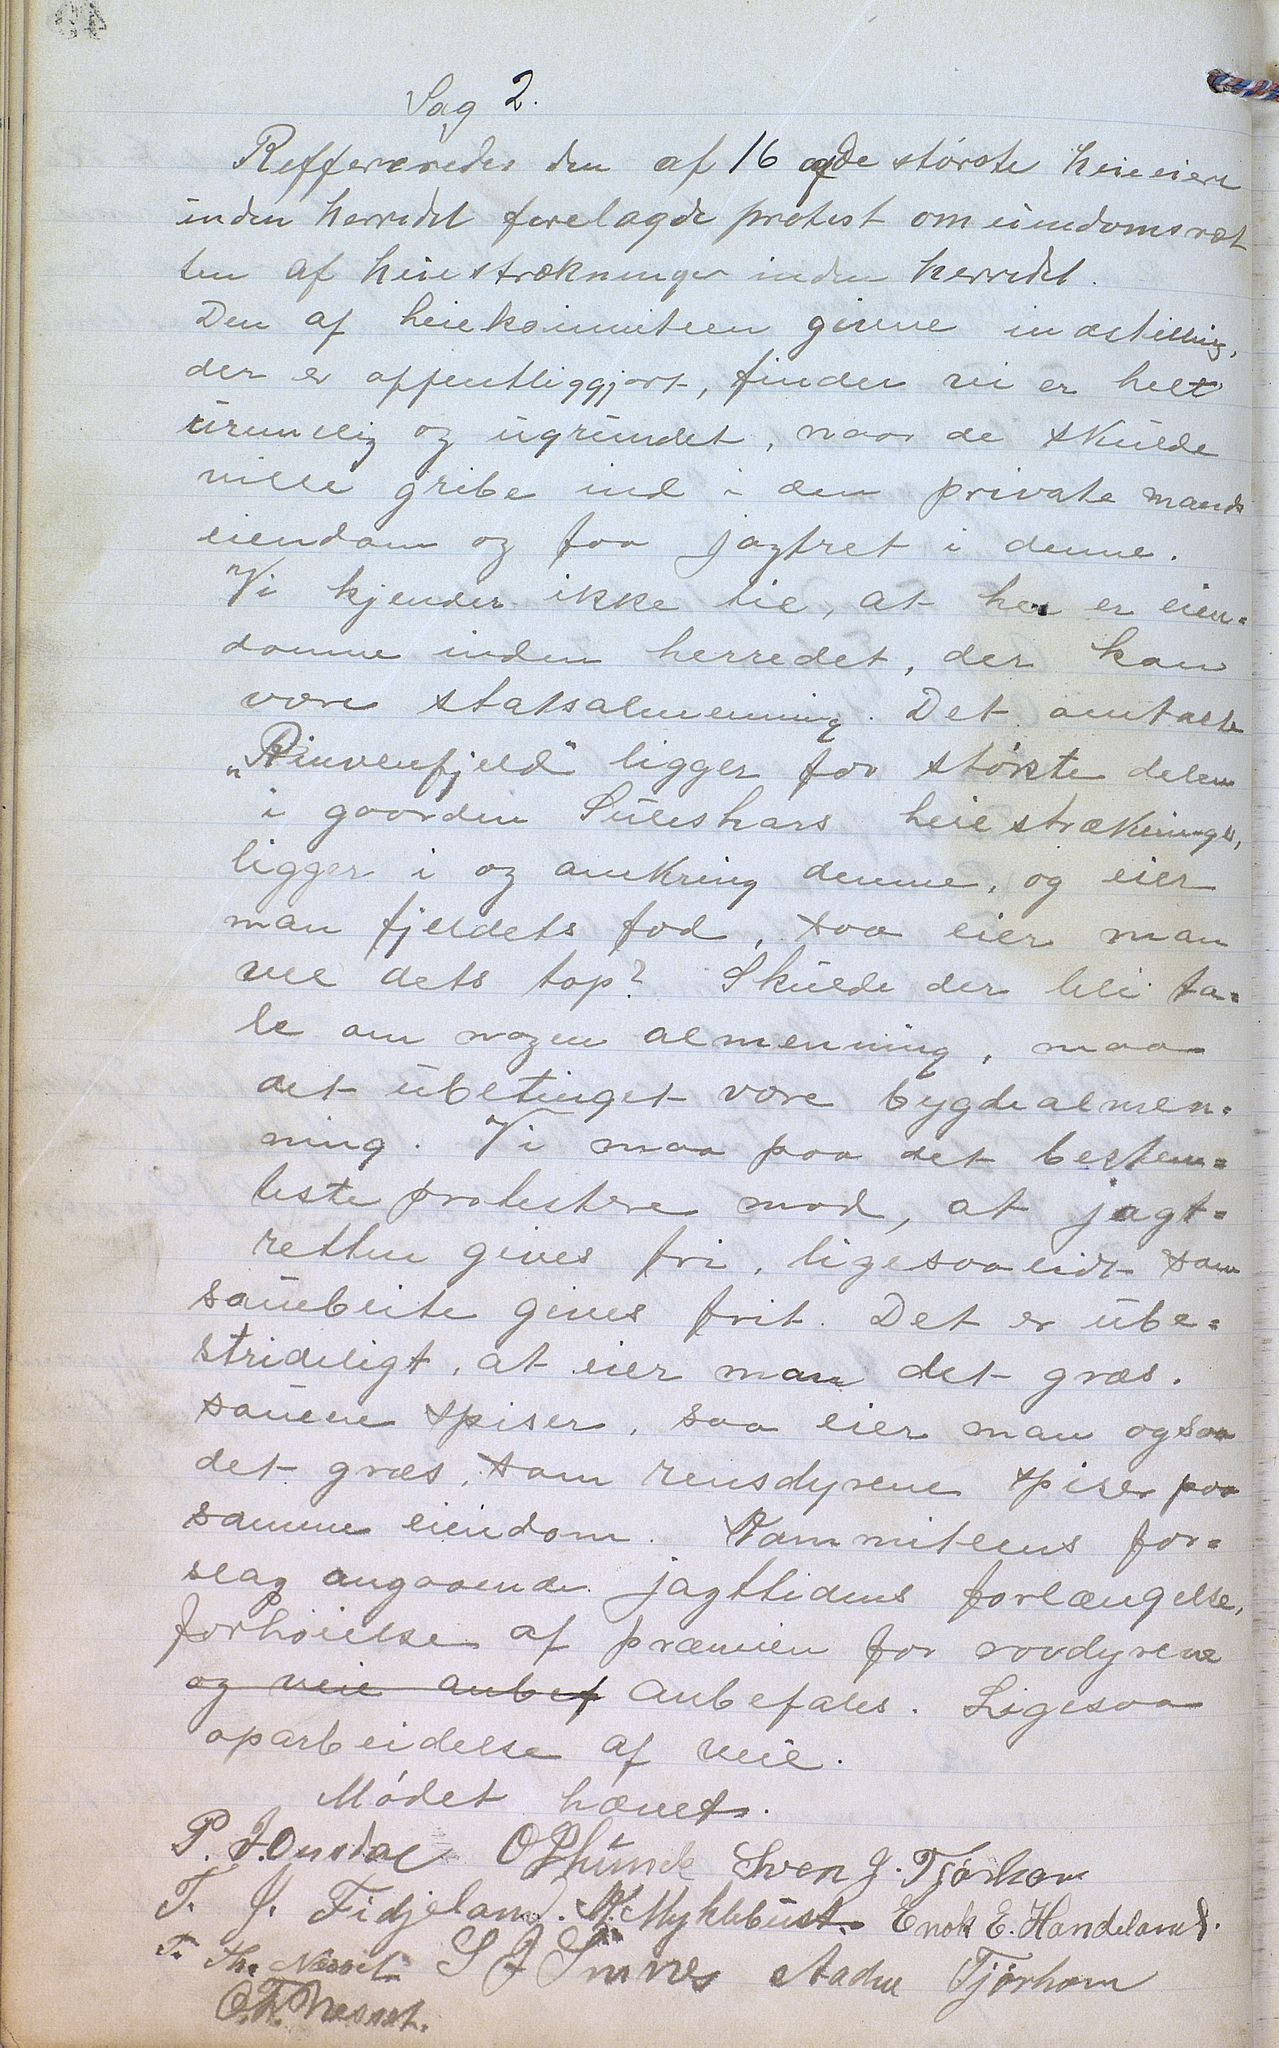 Sag 2.
Reffereredes den af 16 af de største heieiere
inden herredet forelagde protest om eiendomsret
ten af heiestrækninger inden herredet.
Den af heiekommiteen givne indstilling,
der er offentliggjort, finder vi er helt
urimelig og ugrundet, naar de skulde
ville gribe ind i den private mands
eiendom og faa jagtret i denne.
Vi kjender ikke til, at her er eien-
domme inden herredet, der kan
være statsalmenning. Det omtalte
"Rinvenfjeld" ligger for største delen
i gaarden Suleskars heiestrækninger,
ligger i og omkring denne, og eier
man fjeldets fod, saa eier man
vel dets top? Skulde der bli ta-
le om nogen almenning, maa
det ubetinget være bygdealmen-
ning. Vi maa paa det bestem-
teste protestere mod, at jagt-
retten gives fri, ligesaalidt som
sauebeite gives frit. Det er ube-
strideligt, at eier man det græs,
sauene spiser, saa eier man ogsaa
det græs, som rensdyrene spiser paa
samme eiendom. Kommiteens for-
slag angaaende jagttidens forlængelse,
forhøielse af præmien for rovdyrene
og veie anbef anbefales. Ligesaa
oparbeidelse af veie.
Mødet hævet.
P. J. Ousdal O P Lunde Sven J. Tjørhom
T. J. Fidjeland. Myklebust. Enok E. Handeland.
T. Th. Nesset S J Sinnes Aadne Tjørhom
O. T. Nesset.